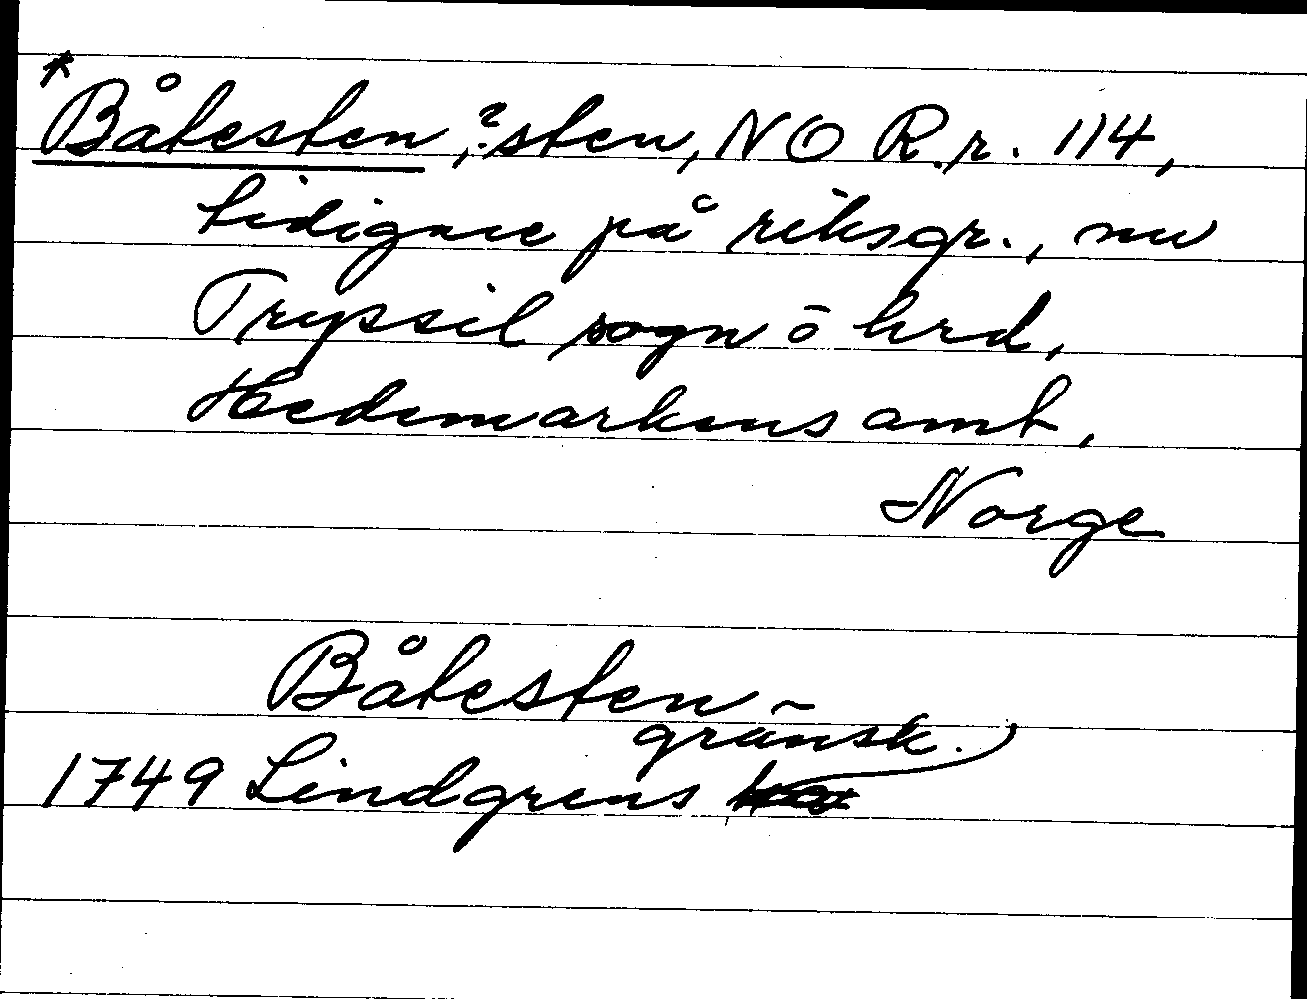 *Båtesten, ?sten, NO R.r. 114,
tidigare på riksgr., nu
Tryssil sogn o hrd,
Hedemarkens amt,
Norge
Båtesten
gränsk.
1749 Lindgrens